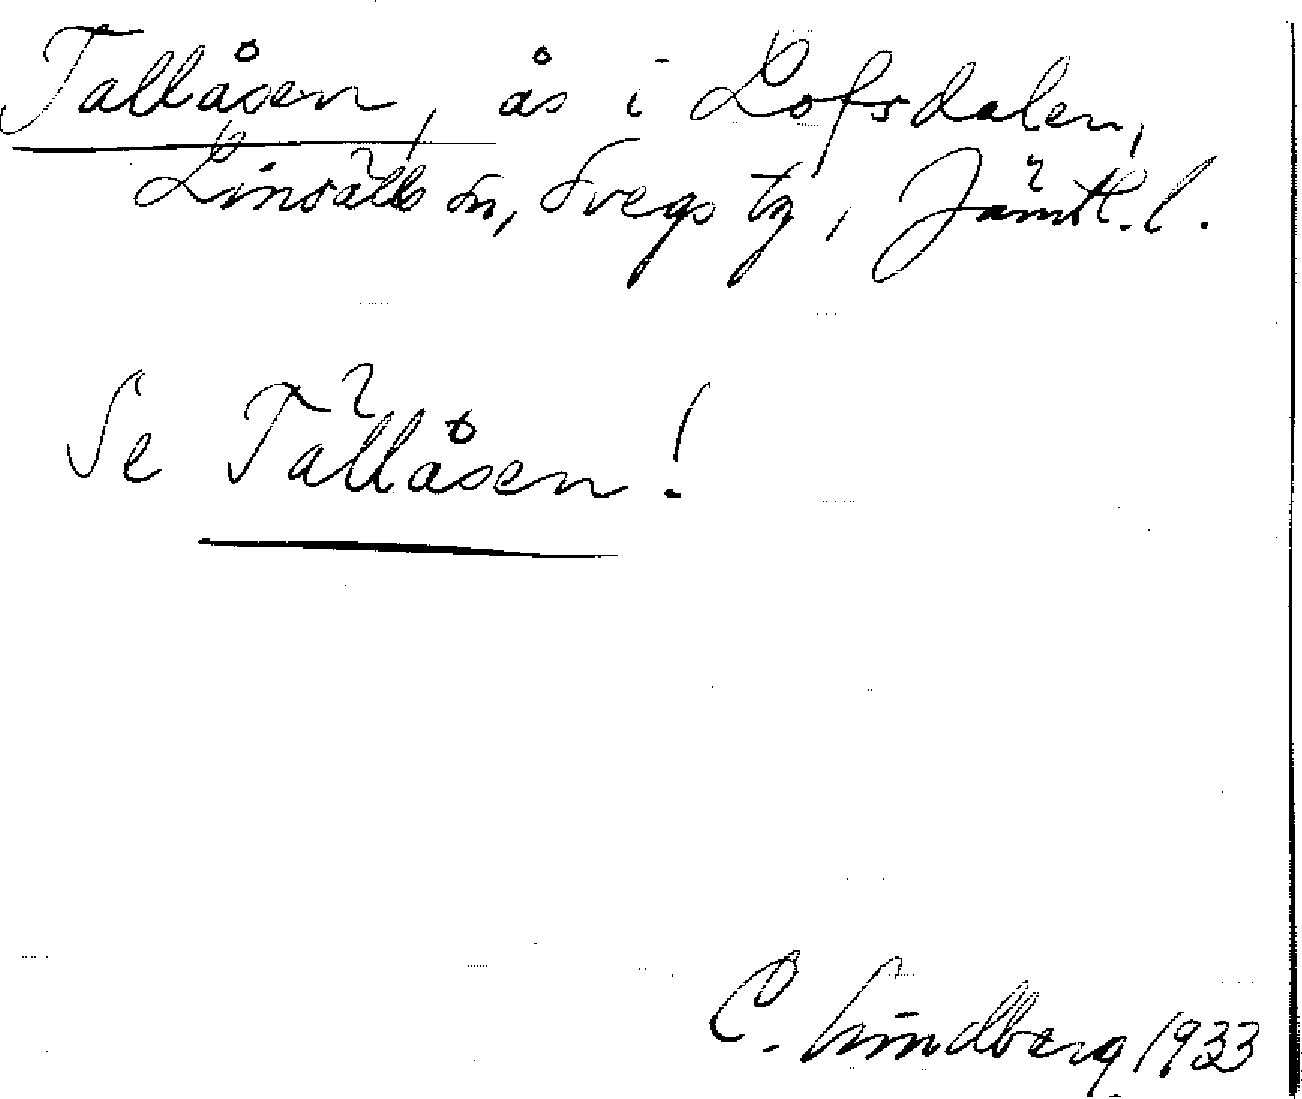 Tallåsen, ås i Lofsdalen,
Linsälls sn, Svegs tg, Jämtl. l.
Se Tällåsen!
C. Lindberg 1933